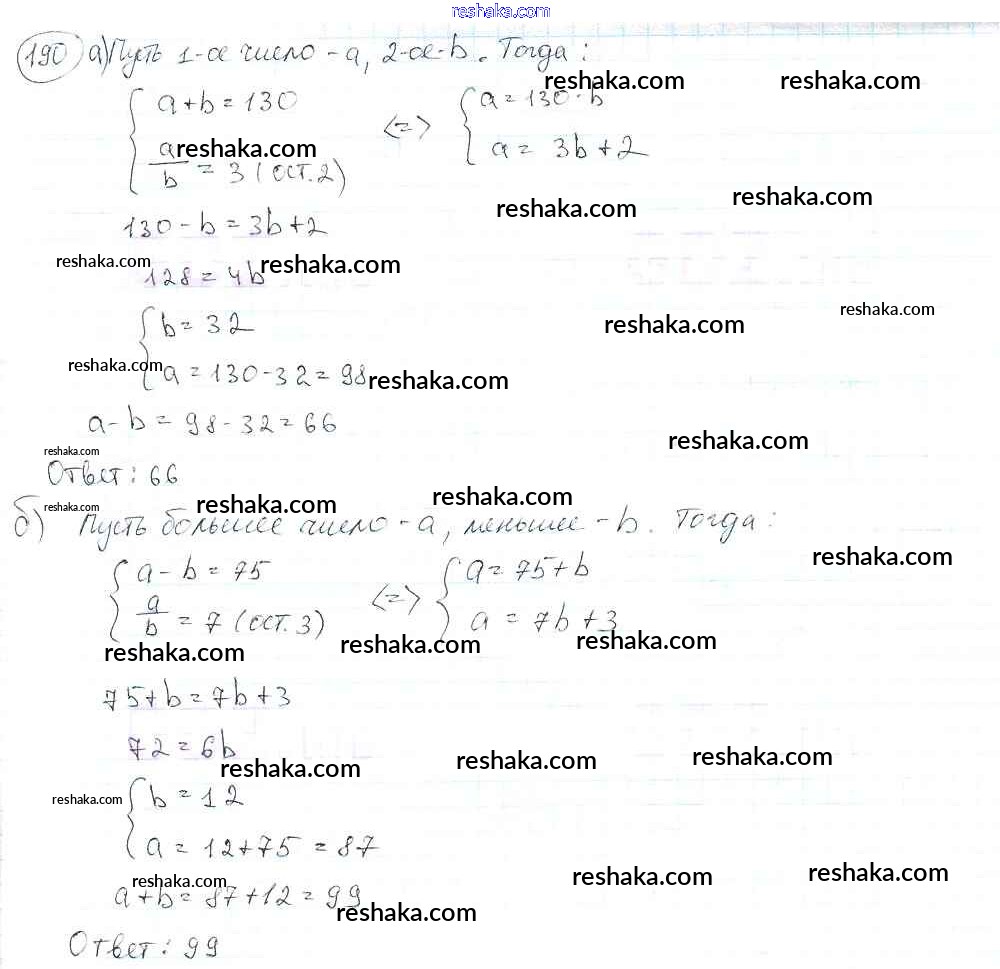 reshaka.com
190 а) Пусть 1-ое число - a, 2-ое - b. Тогда:
reshaka.com reshaka.com
{ a + b = 130 <=> { a = 130 - b
a/b = 3 (ост. 2) a = 3b + 2
reshaka.com
reshaka.com reshaka.com
130 - b = 3b + 2
reshaka.com reshaka.com
128 = 4b
reshaka.com reshaka.com
{ b = 32
reshaka.com reshaka.com
a = 130 - 32 = 98
a - b = 98 - 32 = 66
reshaka.com
reshaka.com
Ответ: 66
reshaka.com reshaka.com reshaka.com
б) Пусть большее число - a, меньшее - b. Тогда:
reshaka.com
{ a - b = 75 <=> { a = 75 + b
a/b = 7 (ост. 3) a = 7b + 3
reshaka.com reshaka.com reshaka.com
75 + b = 7b + 3
72 = 6b
reshaka.com reshaka.com reshaka.com
reshaka.com
{ b = 12
a = 12 + 75 = 87
reshaka.com reshaka.com reshaka.com
a + b = 87 + 12 = 99
reshaka.com
Ответ: 99